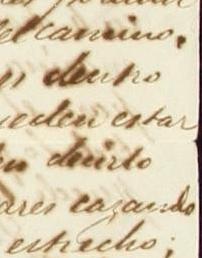 el camino.
dentro
ueden estar
decirlo
ares cazando
estrecho;